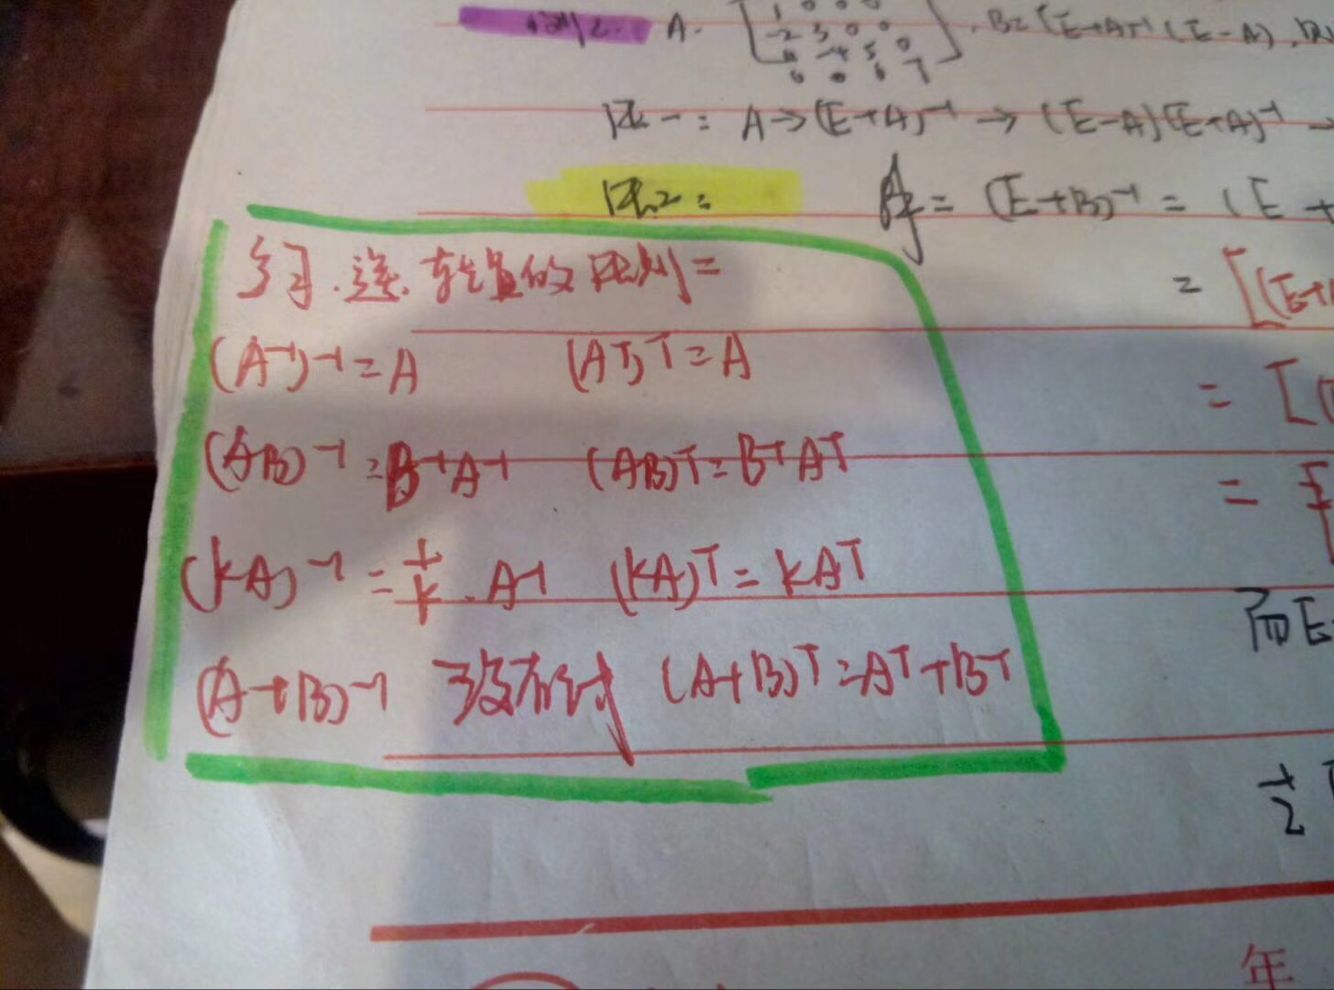 A= [1 0 0 0 -2 3 0 0 0 -4 5 0 0 0 6 7], B=(E+A)⁻¹(E-A),
法一: A→(E+A)⁻¹→(E-A)(E+A)⁻¹→
法2: 原式=(E+B)⁻¹=(E+
转置的法则:
=[(E+
(A⁻¹)⁻¹=A (Aᵀ)ᵀ=A
=[(
(AB)⁻¹=B⁻¹A⁻¹ (AB)ᵀ=BᵀAᵀ
=
(kA)⁻¹=1/k·A⁻¹ (kA)ᵀ=kAᵀ
而E
(A+B)⁻¹ 没有 (A+B)ᵀ=Aᵀ+Bᵀ
1/2
年